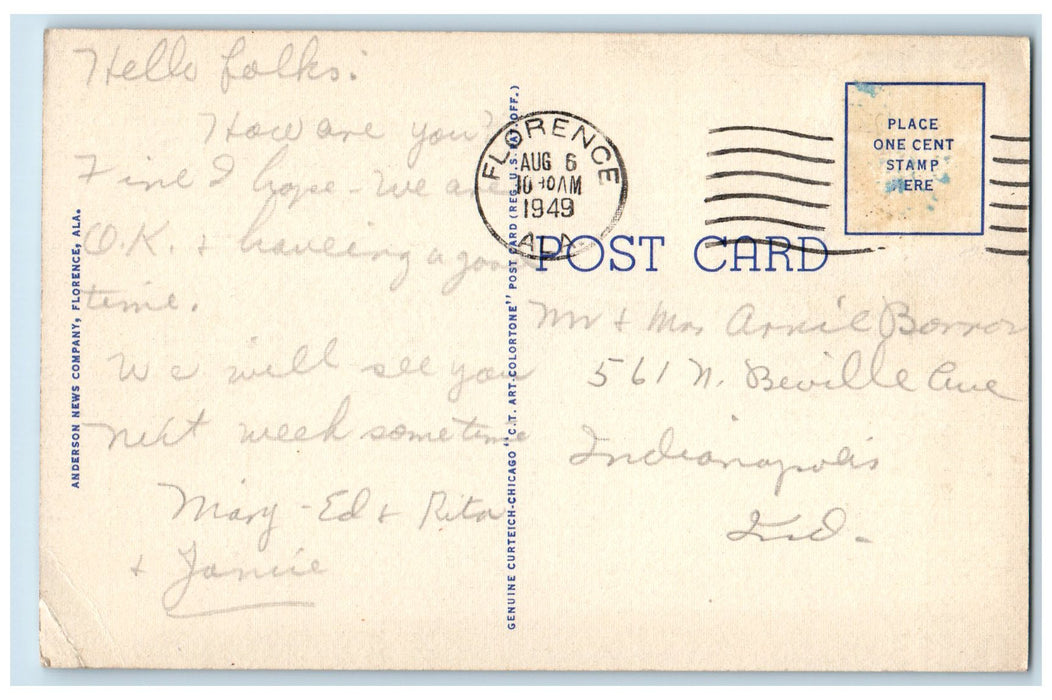 Hello folks:
How are you?
Fine I hope - We are
O.K. + haveing a good
time.
We will see you
next week sometime
Mary - Ed + Rita
+ Janie
ANDERSON NEWS COMPANY, FLORENCE, ALA.
GENUINE CURTEICH-CHICAGO "C.T. ART-COLORTONE" POST CARD (REG. U.S. PAT. OFF.)
FLORENCE
AUG 6
10 30 AM
1949
ALA.
PLACE
ONE CENT
STAMP
HERE
POST CARD
Mr + Mrs Arnie Borror
561 N. Beville Ave
Indianapolis
Ind.